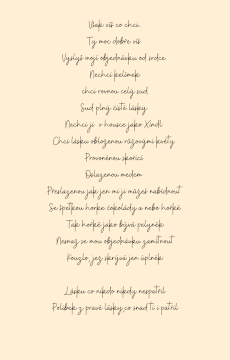 Však víš co chci
Ty moc dobře víš
Vyslyš moji objednávku od srdce
Nechci kelímek
chci rovnou celý sud
Sud plný čisté lásky
Nechci ji v housce jako Xindl
Chci lásku obloženou růžovými květy
Provoněnou skořicí
Oblazenou medem
Přeslazenou jak jen mi ji můžeš nabídnout
Se špetkou hořké čokolády a nebo hořké
Tak hořké jako bývá pelyněk
Nesmaž se mou objednávku zamítnout
Kouzlo, jez skrývá jen úplněk
Lásku co nikdo nikdy nespatřil
Polibek z pravé lásky, co snad ti i patřil